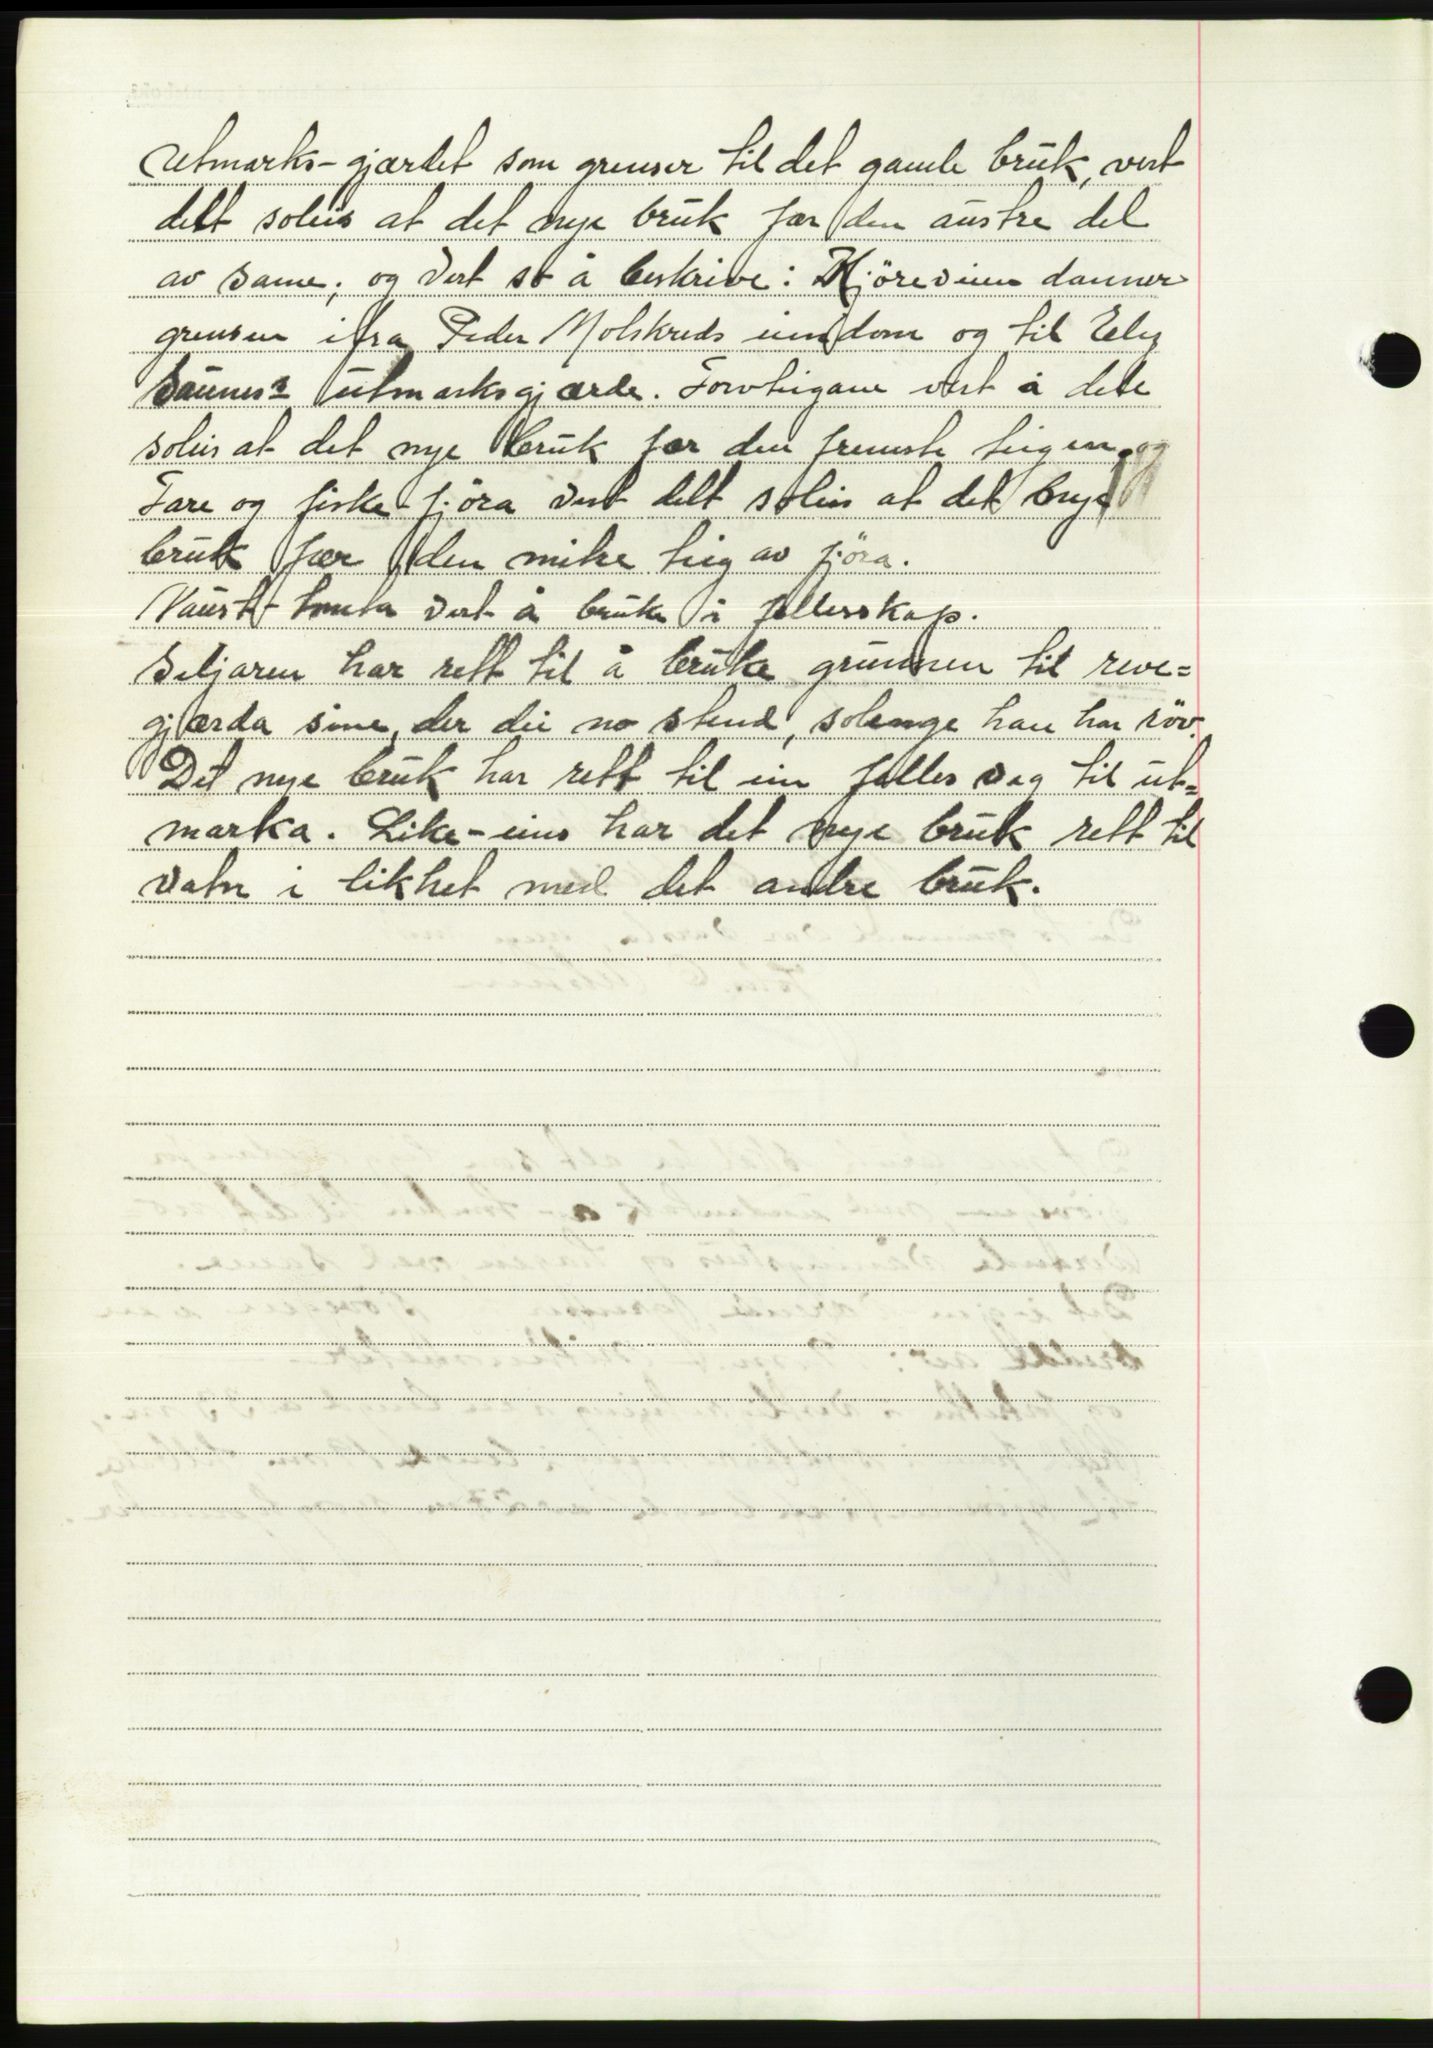 Utmarks-gjærdet som grenser til det gamle bruk, vert
delt soleis at det nye bruk fær den austre del
av same, og vert so å beskrive: Kjörevein danner
grensen ifra Peder Molskreds eiendom og til
Saunes utmarksgjærde. Torvteigane vert å dele
soleis at det nye bruk fær den fremste teigen og
Tare og fiske-fjöra vert delt soleis at det nye
bruk fær den mitre teig av fjöra.
Naust-tomta vert å bruke i fellesskap.
Seljaren har rett til å bruke grunnen til reve=
gjærda sine, der dei no stend, solenge han har röv.
Det nye bruk har rett til ein felles veg til ut=
marka. Like-eins har det nye bruk rett til
vatn i likhet med det andre bruk.